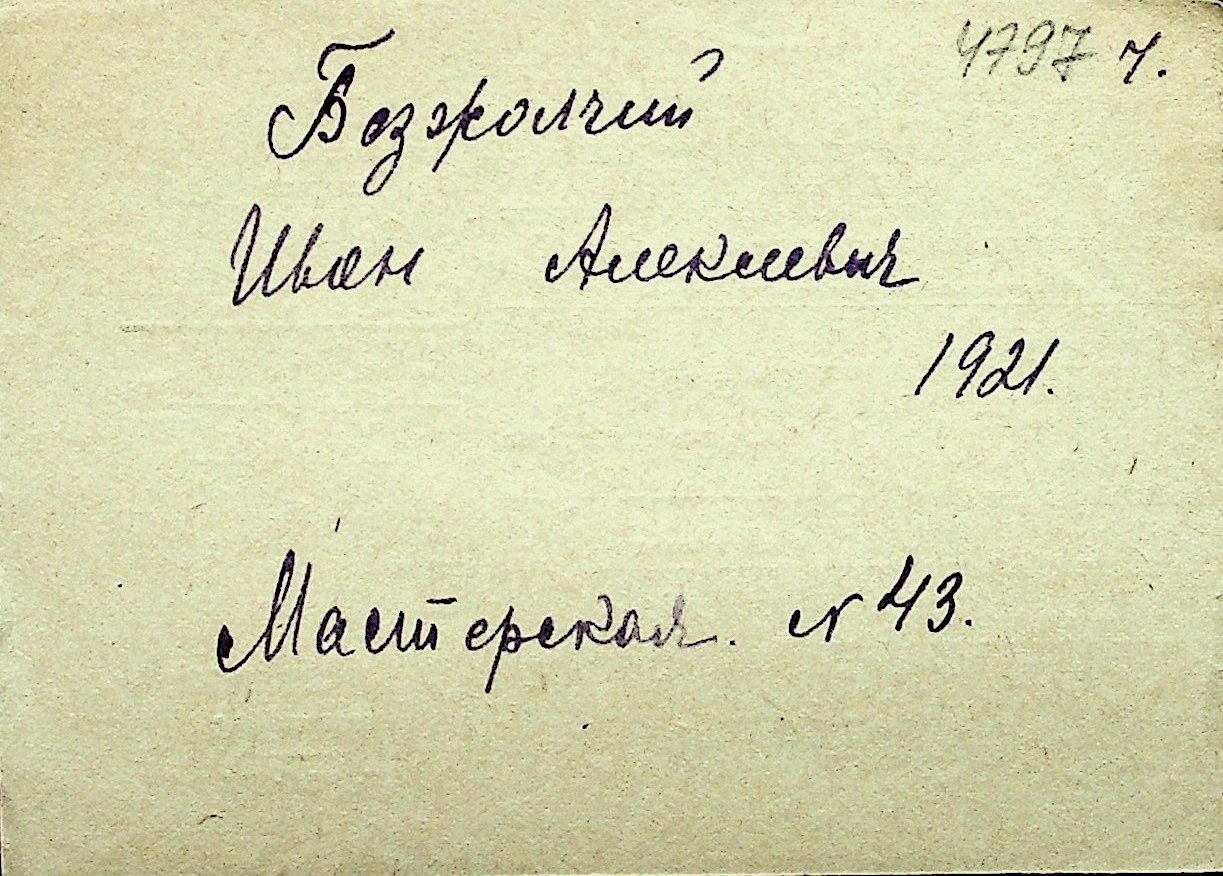 4797 ч.
Безжолчий
Иван Алексеевич
1921.
Мастерская. N 43.